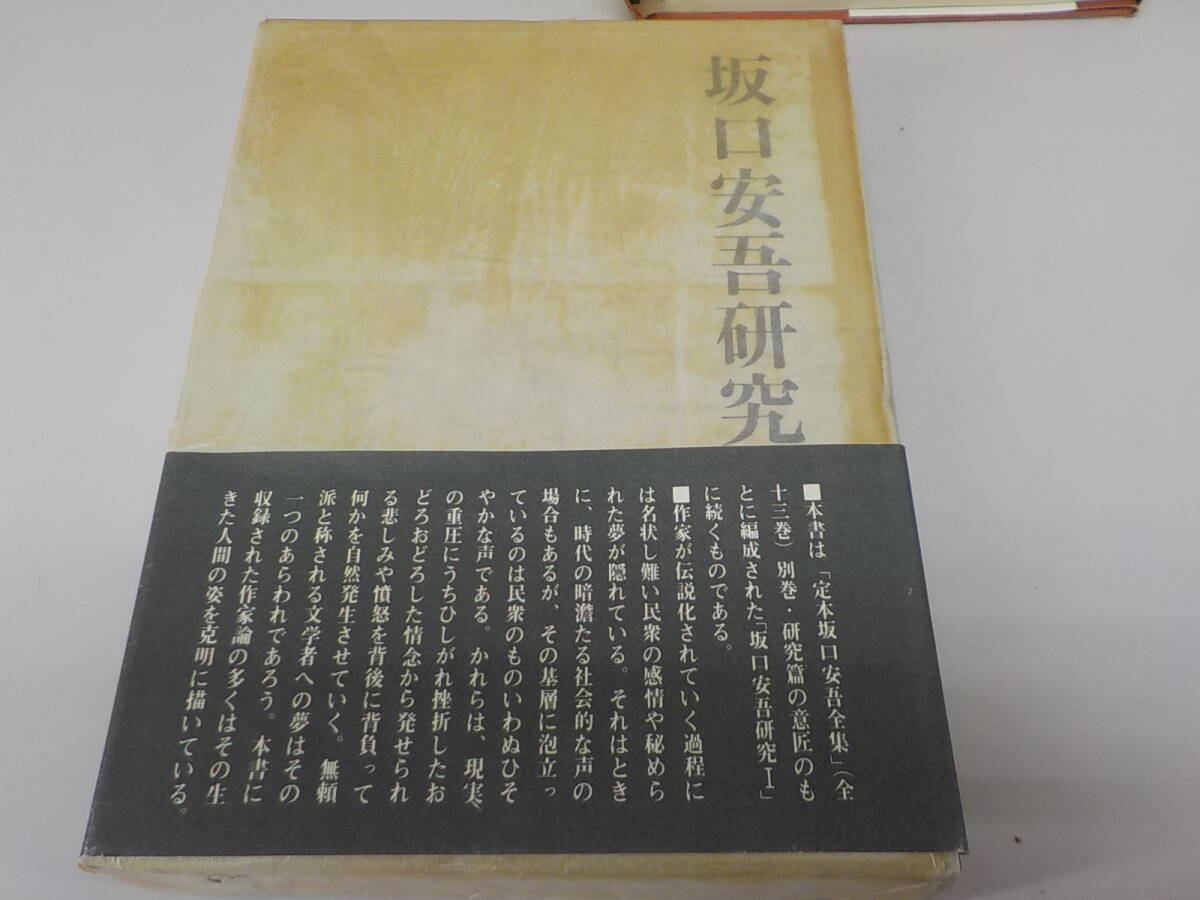 坂口安吾研究
■本書は「定本坂口安吾全集」(全
十三巻)別巻・研究篇の意匠のも
とに編成された「坂口安吾研究Ⅰ」
に続くものである。
■作家が伝説化されていく過程に
は名状し難い民衆の感情や秘めら
れた夢が隠れている。それはとき
に、時代の暗澹たる社会的な声の
場合もあるが、その基層に泡立っ
ているのは民衆のものいわぬひそ
やかな声である。かれらは、現実
の重圧にうちひしがれ挫折したお
どろおどろした情念から発せられ
る悲しみや憤怒を背後に背負って
何かを自然発生させていく。無頼
派と称される文学者への夢はその
一つのあらわれであろう。本書に
収録された作家論の多くはその生
きた人間の姿を克明に描いている。